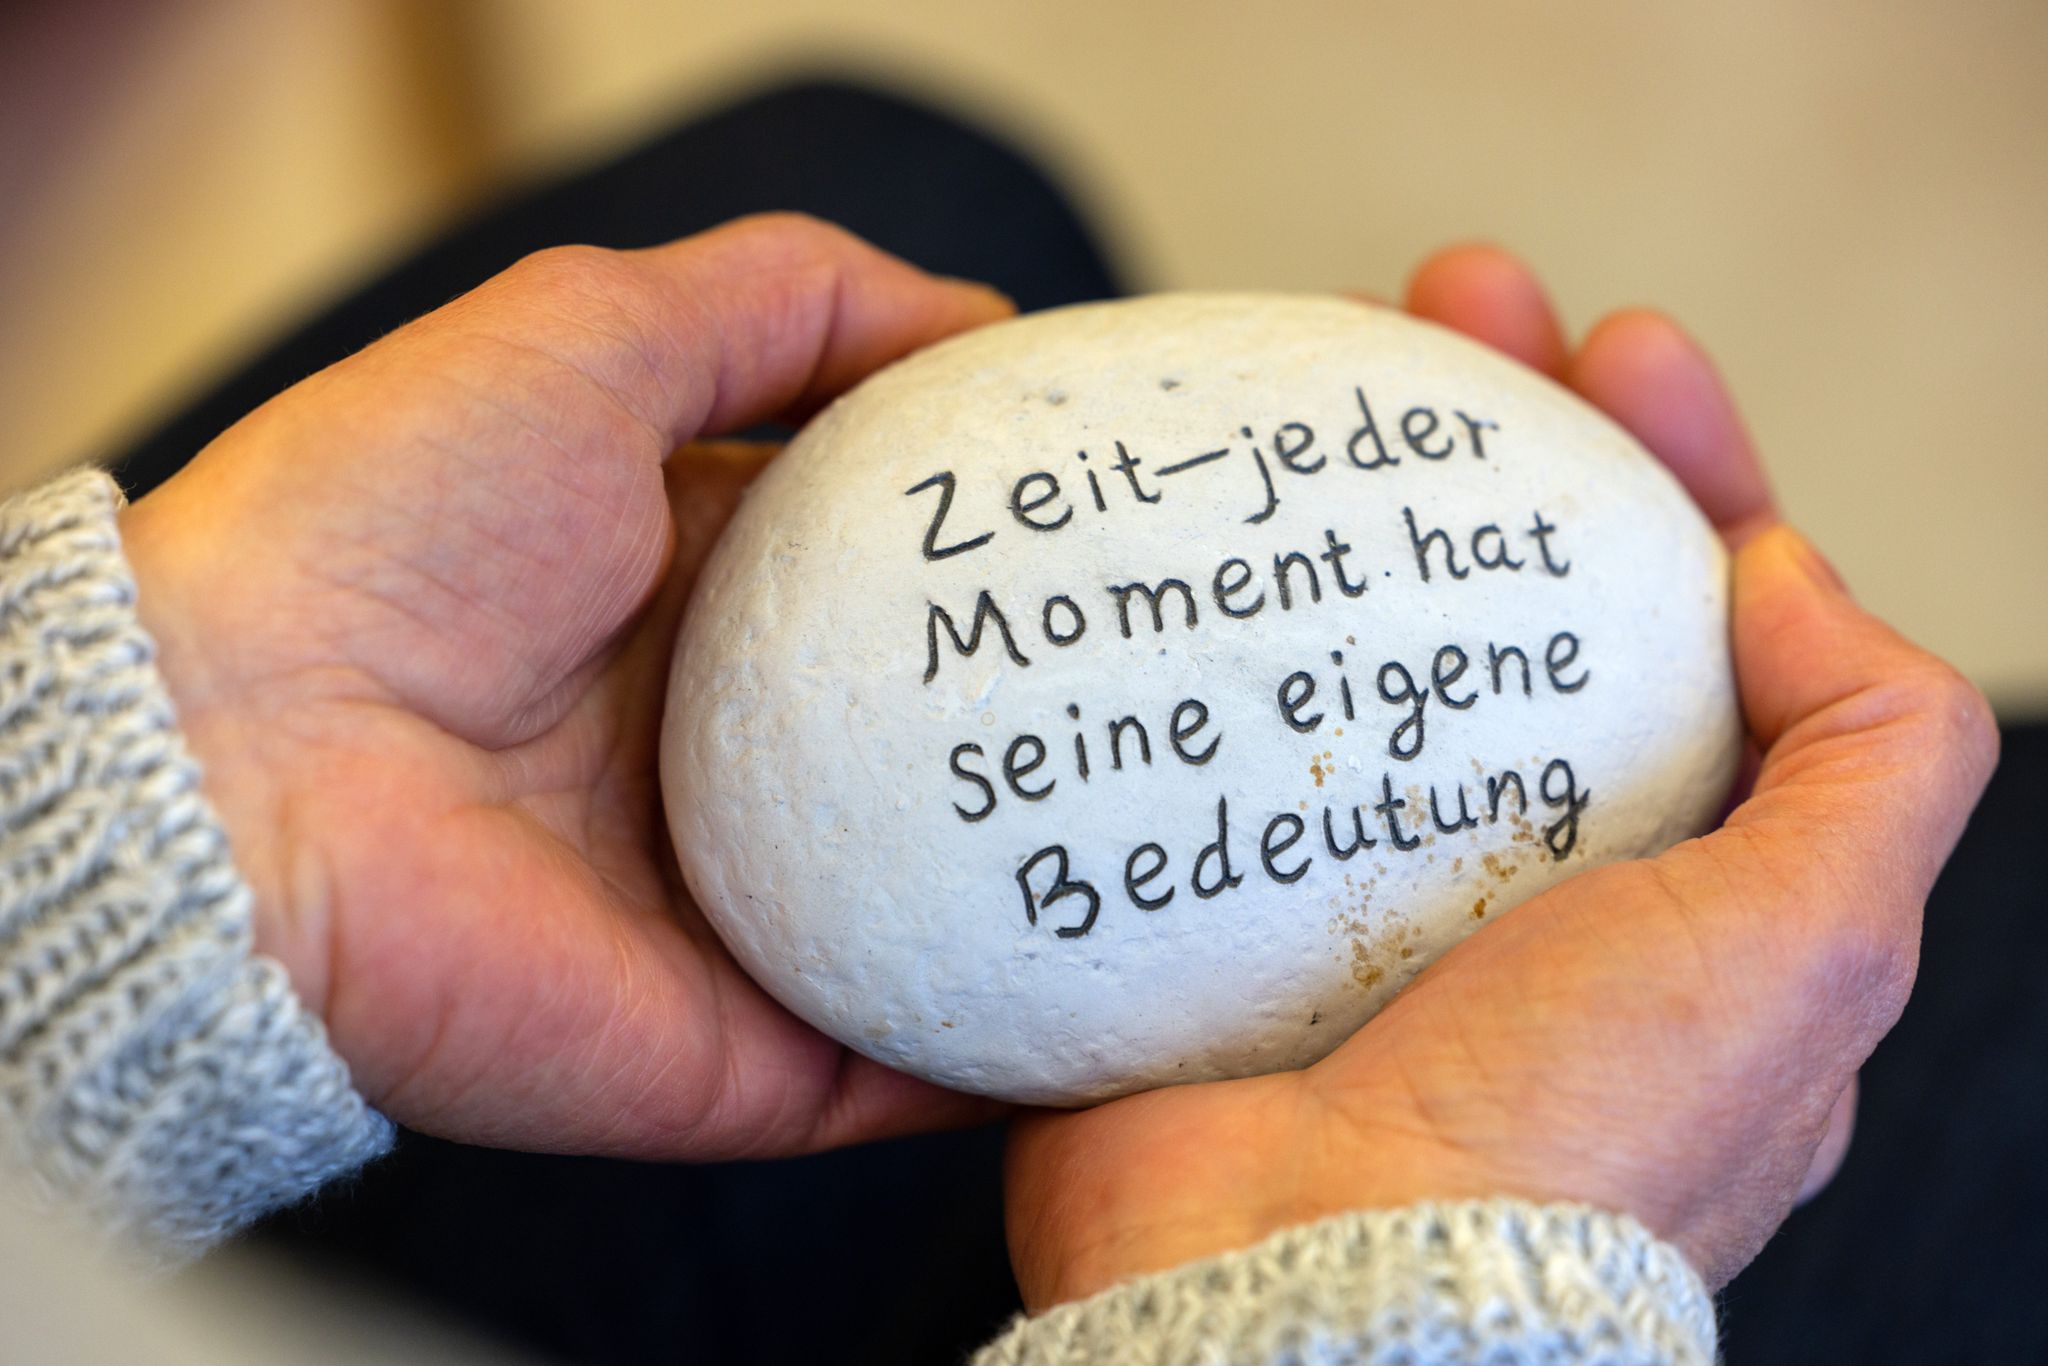 Zeit-jeder
Moment hat
seine eigene
Bedeutung